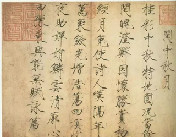 閏中秋月
桂彩中秋特地圓況當餘
閏魄澄鮮因懷勝賞初
經月免使詩人歎隔年
萬象斂光增浩蕩四溟收
夜助嬋娟鱗雲清廓心田
豫乘興能無賦詠篇